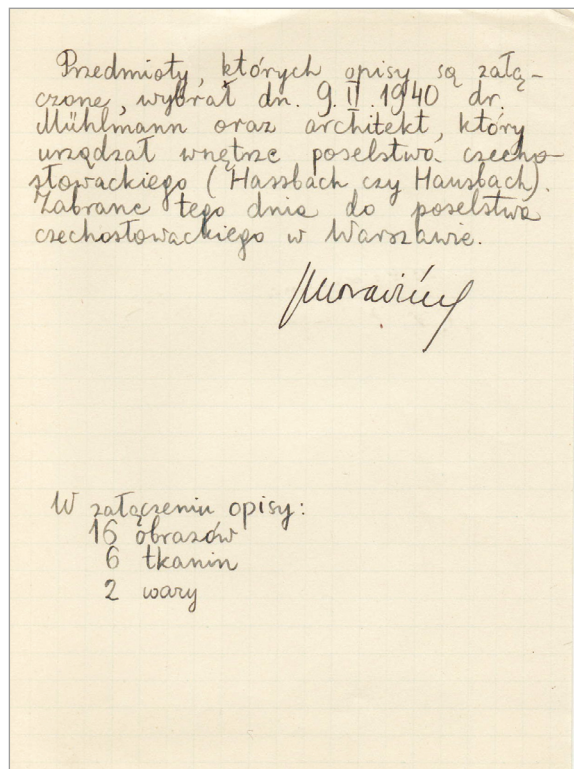 Przedmioty, których opisy są załą-
czone, wybrał dn. 9.II.1940 dr.
Mühlmann oraz architekt, który
urządzał wnętrze poselstwa czecho-
słowackiego (Hassbach czy Hausbach).
Zabrane tego dnia do poselstwa
czechosłowackiego w Warszawie.
W załączeniu opisy:
16 obrazów
6 tkanin
2 wazy